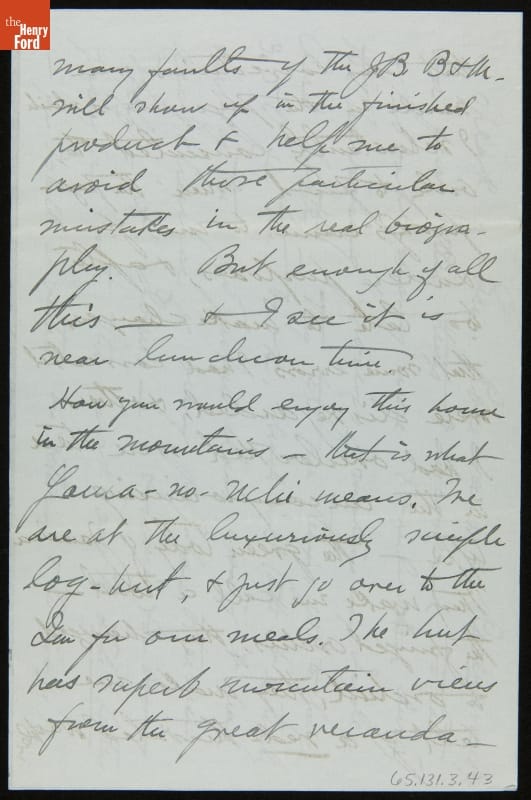 the
Henry
Ford
many faults of the J.B. B & M.
will show up in the finished
product & help me to
avoid those particular
mistakes in the real biogra-
phy. But enough of all
this — & I see it is
near luncheon time.
How you would enjoy this home
in the mountains — that is what
Yama-no-Uchi means. We
are at the luxuriously simple
log-hut, & just go over to the
Inn for our meals. The hut
has superb mountain views
from the great veranda —
65.131.3.43